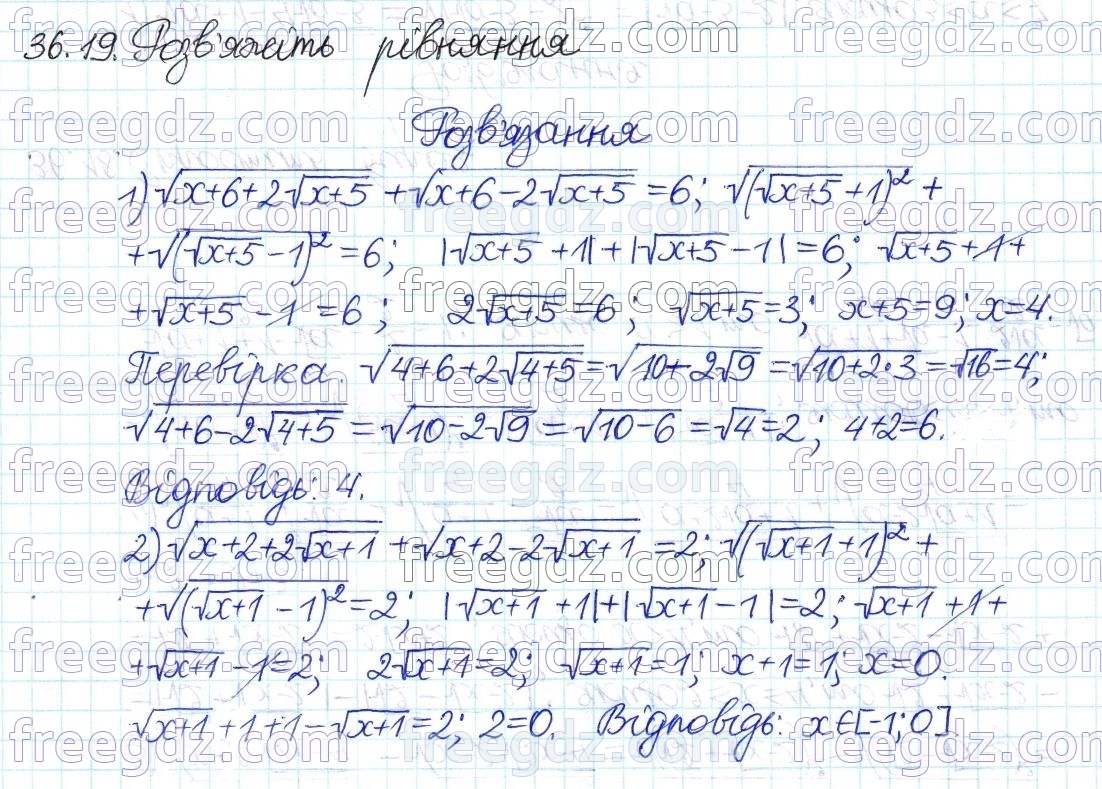 36.19. Розв'яжіть рівняння
Розв'язання
1) √(x+6+2√(x+5)) + √(x+6-2√(x+5)) = 6; √((√(x+5)+1)²) +
+ √((√(x+5)-1)²) = 6; |√(x+5)+1| + |√(x+5)-1| = 6; √(x+5)+1+
+√(x+5)-1 = 6; 2√(x+5) = 6; √(x+5) = 3; x+5=9; x=4.
Перевірка. √(4+6+2√(4+5)) = √(10+2√9) = √(10+2·3) = √16 = 4;
√(4+6-2√(4+5)) = √(10-2√9) = √(10-6) = √4 = 2; 4+2=6.
Відповідь: 4.
2) √(x+2+2√(x+1)) + √(x+2-2√(x+1)) = 2; √((√(x+1)+1)²) +
+ √((√(x+1)-1)²) = 2; |√(x+1)+1| + |√(x+1)-1| = 2; √(x+1)+1+
+√(x+1)-1 = 2; 2√(x+1) = 2; √(x+1) = 1; x+1=1; x=0.
√(x+1)+1+1-√(x+1) = 2; 2=0. Відповідь: x∈[-1;0].